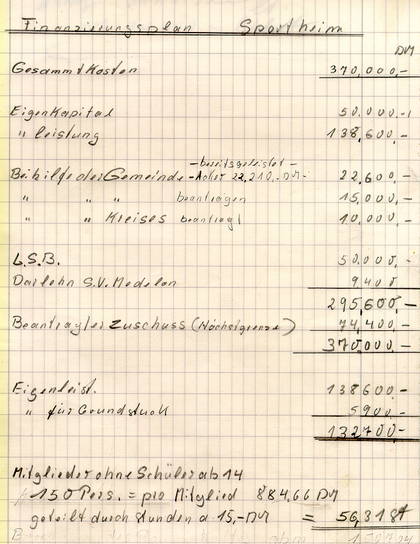 Finanzierungsplan Sportheim
DM
Gesammtkosten 370,000,-
Eigenkapital 50.000.-
" leistung 138,600,-
- bereitsgeleistet -
Beihilfe der Gemeinde - Acker 22,210.- DM - 22,600,-
" " " beantragen 15,000,-
" " Kreises beantragt 10,000,-
L.S.B. 50,000,-
Darlehn S.V. Medelon 9.400
295,600,-
Beantragter Zuschuss (Höchstgrenze) 74,400,-
370,000,-
Eigenleist. 138600-
" für Grundstück 5900-
132700-
Mitglieder ohne Schüler ab 14
150 Pers. = pro Mitglied 884.66 DM
geteilt durch Stunden a 15,- DM = 56,318